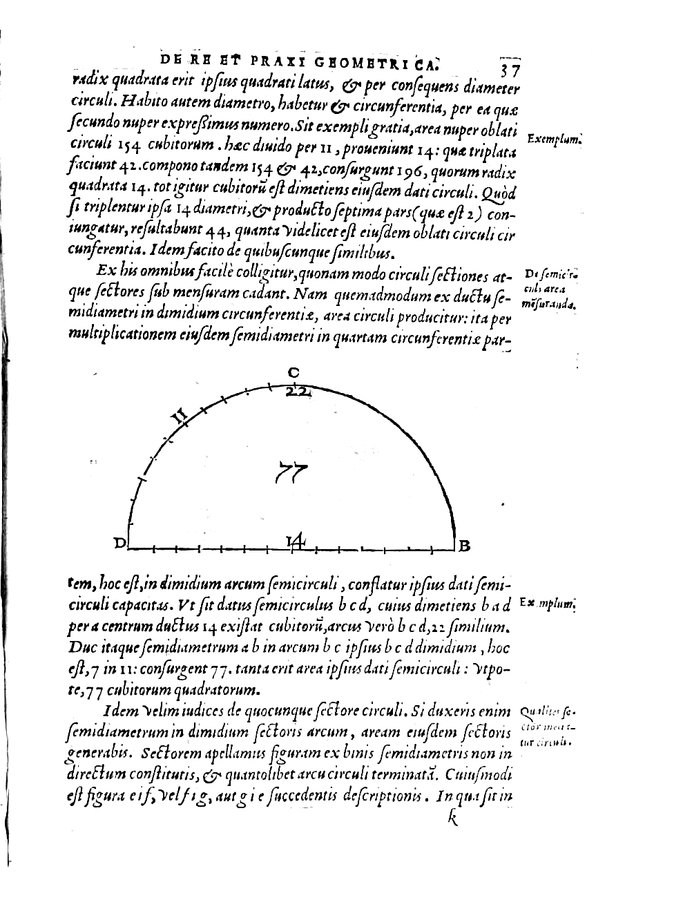 DE RE ET PRAXI GEOMETRICA. 37
radix quadrata erit ipſius quadrati latus, & per conſequens diameter
circuli. Habito autem diametro, habetur & circunferentia, per ea quæ
ſecundo nuper expreſſimus numero. Sit exempli gratia, area nuper oblati
Exemplum.
circuli 154 cubitorum. hæc diuido per 11, proueniunt 14: quæ triplata
faciunt 42. compono tandem 154 & 42, conſurgunt 196, quorum radix
quadrata 14. tot igitur cubitorū eſt dimetiens eiuſdem dati circuli. Quòd
ſi triplentur ipſa 14 diametri, & producto ſeptima pars (quæ eſt 2) con-
iungatur, reſultabunt 44, quanta videlicet eſt eiuſdem oblati circuli cir
cunferentia. Idem facito de quibuſcunque ſimilibus.
Ex his omnibus facilè colligitur, quonam modo circuli ſectiones at-
De ſemicir-
culi area
mēſuranda.
que ſectores ſub menſuram cadant. Nam quemadmodum ex ductu ſe-
midiametri in dimidium circunferentiæ, area circuli producitur: ita per
multiplicationem eiuſdem ſemidiametri in quartam circunferentiæ par-
C
22
11
77
D 14 B
tem, hoc eſt, in dimidium arcum ſemicirculi, conflatur ipſius dati ſemi-
circuli capacitas. Vt ſit datus ſemicirculus b c d, cuius dimetiens b a d
Exemplum.
per a centrum ductus 14 exiſtat cubitorū, arcus verò b c d, 22 ſimilium.
Duc itaque ſemidiametrum a b in arcum b c ipſius b c d dimidium, hoc
eſt, 7 in 11: conſurgent 77. tanta erit area ipſius dati ſemicirculi: vtpo-
te, 77 cubitorum quadratorum.
Idem velim iudices de quocunque ſectore circuli. Si duxeris enim
ſemidiametrum in dimidium ſectoris arcum, aream eiuſdem ſectoris
generabis. Sectorem apellamus figuram ex binis ſemidiametris non in
directum conſtitutis, & quantolibet arcu circuli terminatā. Cuiuſmodi
eſt figura e i f, vel f i g, aut g i e ſuccedentis deſcriptionis. In qua ſit in
k